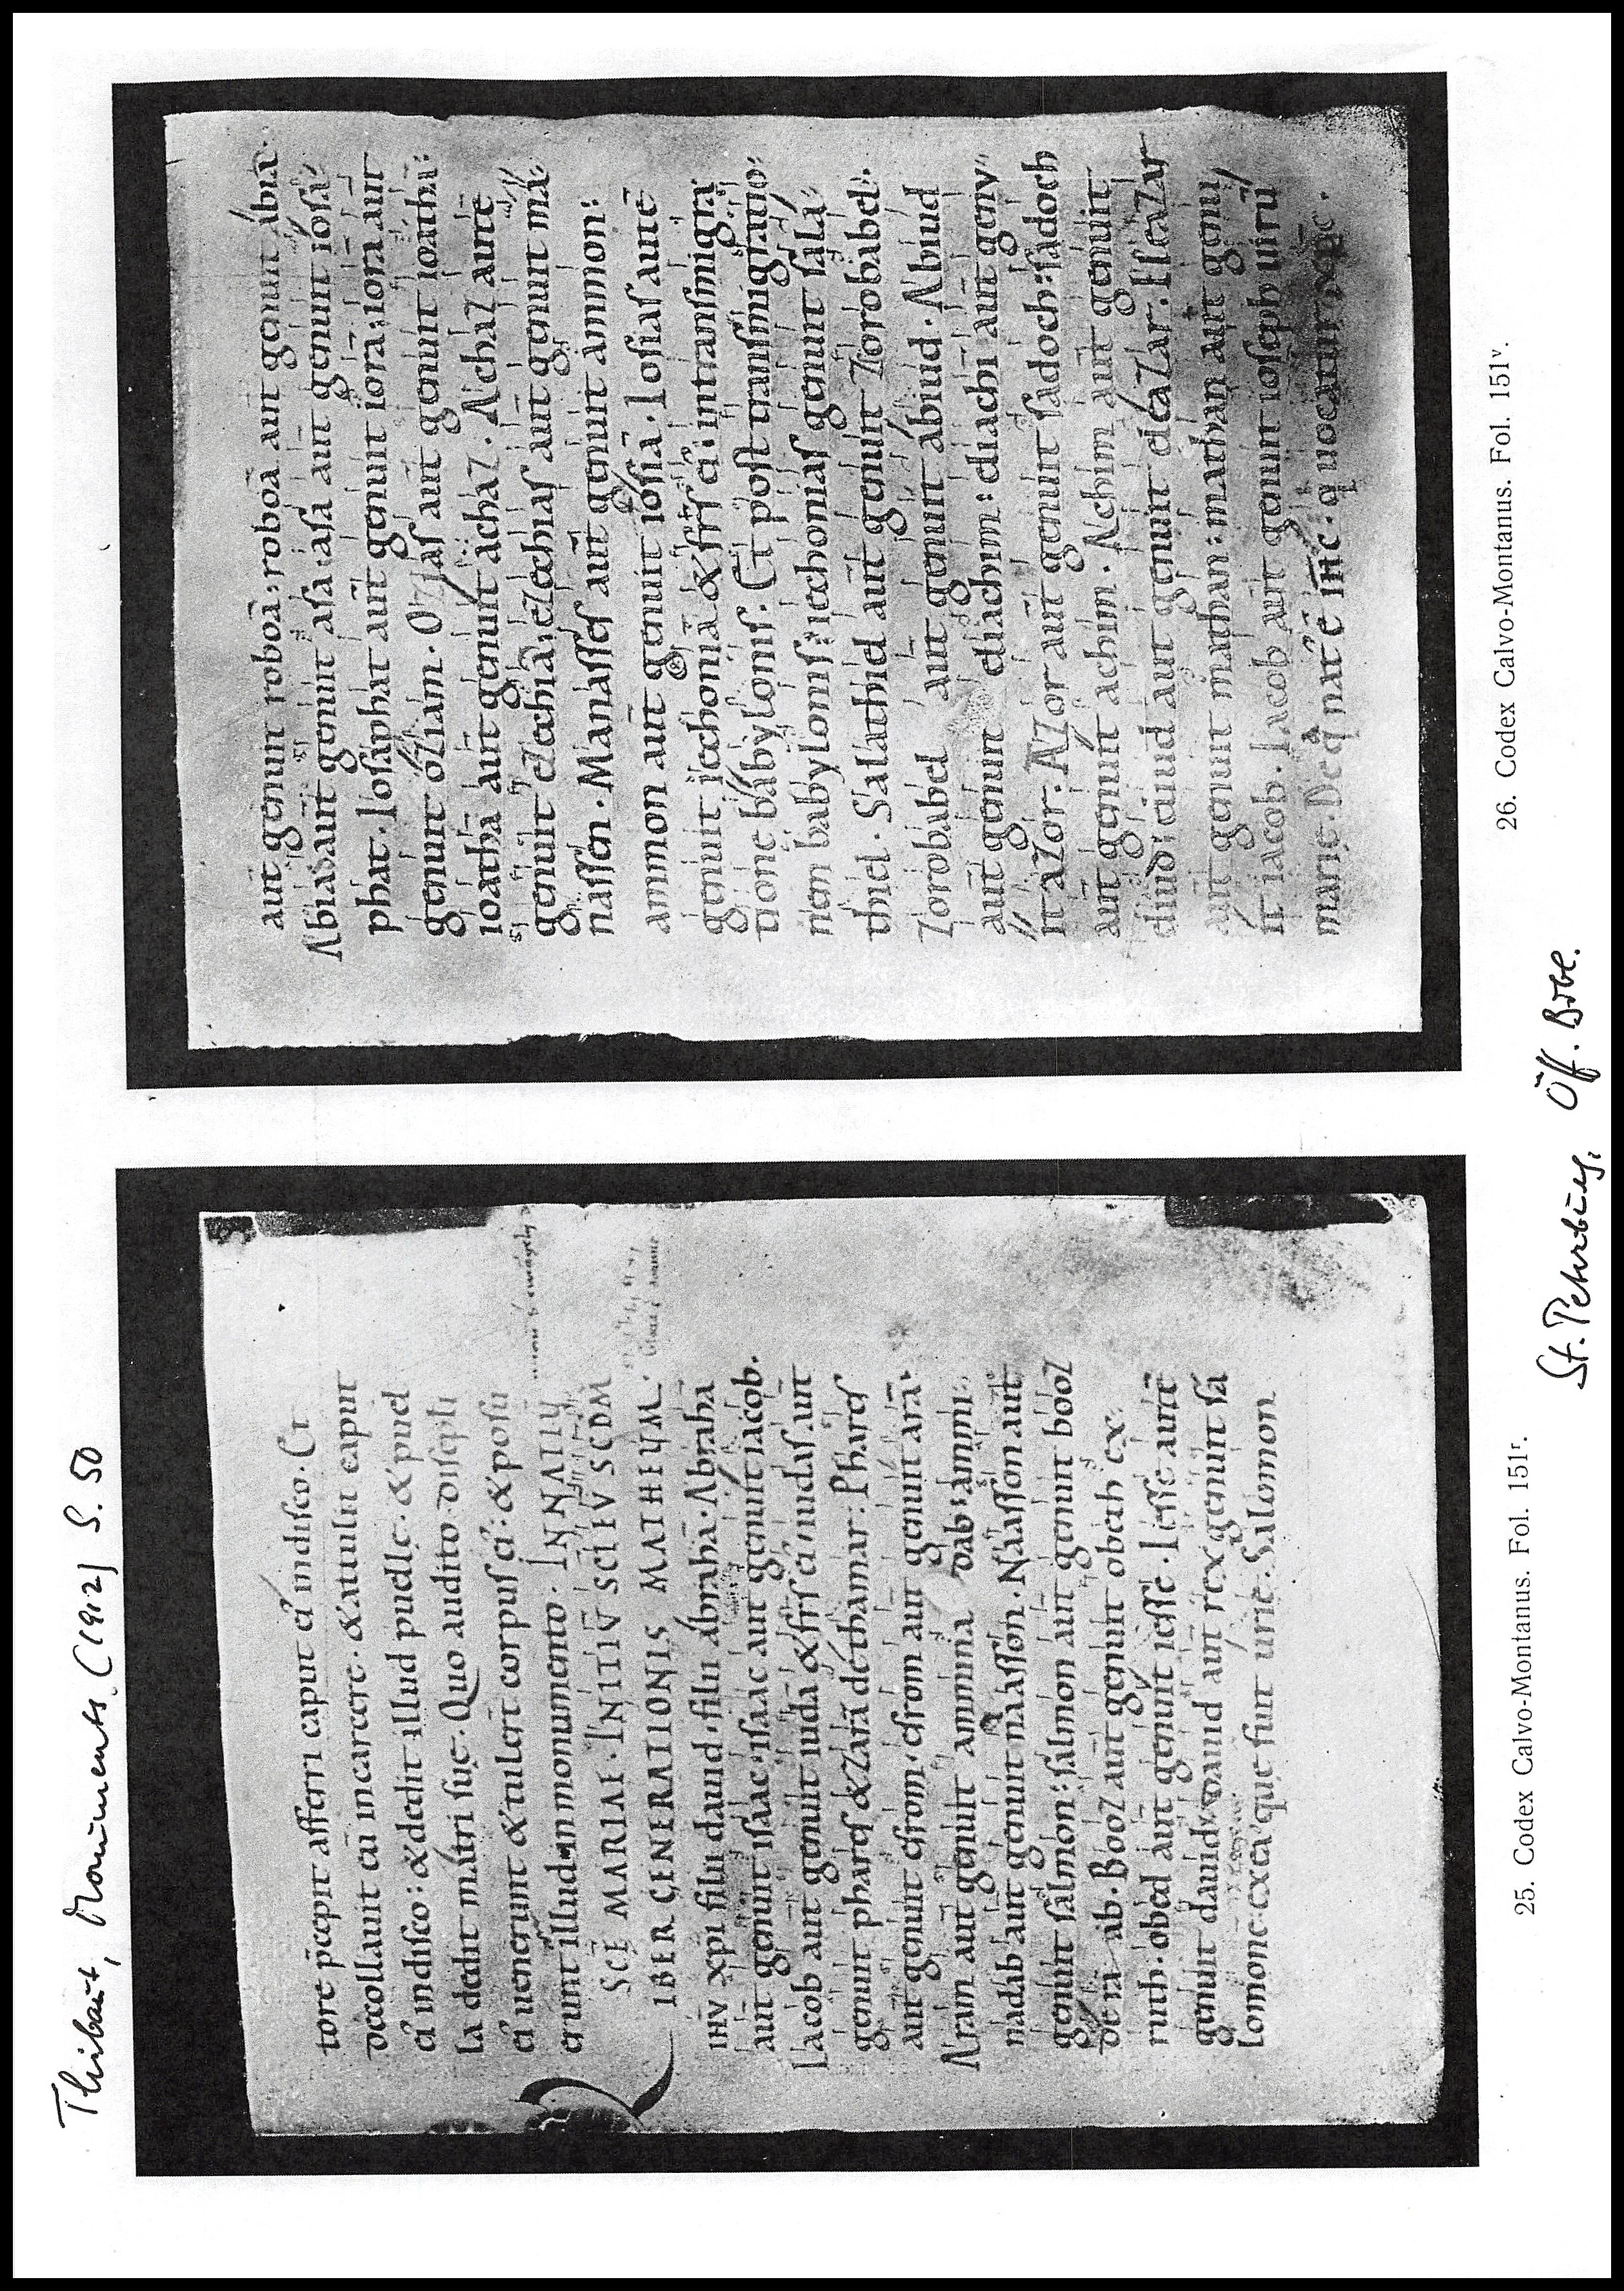 Thibaut, Monuments (1912) S. 50
tore p̄cepit afferri caput ei' indisco. Et
decollauit eū incarcere. &attulit caput
ei' indisco: &dedit illud puelle. &puel
la dedit matri sue. Quo audito discipli
ei' uenerunt &tulert̄ corpus ei': &posu
erunt illud inmonumento. IN NATIV̄
SCĒ MARIAE. INITIV̄ SCĪ EV̄ SCDM
IBER GENERATIONIS MATHEVM.
IHV XPI filii dauid. filii abrahā. Abrahā
aut̄ genuit isaac. isaac aut̄ genuit iacob.
Iacob aut̄ genuit iudā &frs̄ ei' iudas aut̄
genuit phares &zarā dethamar: Phares
aut̄ genuit esrom. esrom aut̄ genuit arā.
Aram aut̄ genuit ammina dab: ammi
nadab aut̄ genuit naasson. Naasson aut̄
genuit salmon: salmon aut̄ genuit booz
de ra ab. Booz aut̄ genuit obeth ex
ruth. obed aut̄ genuit iesse. Iesse autē
genuit dauid dauid aut̄ rex genuit sa
lomone. exea que fuit urie. Salomon
25. Codex Calvo-Montanus. Fol. 151r.
aut̄ genuit roboā: roboā aut̄ genuit abiā.
Abia aut̄ genuit asa: asa aut̄ genuit iosa
phat. Iosaphat aut̄ genuit iorā: iorā aut̄
genuit oziam. Ozias aut̄ genuit ioathā:
ioatha aut̄ genuit achaz. Achaz autē
genuit ezechiā; ezechias aut̄ genuit ma
nassen. Manasses aut̄ genuit ammon:
ammon aut̄ genuit iosiā. Iosias autē
genuit iechoniā &frs̄ ei': intransmigra
tione babylonis. Et post transmigratio
nem babylonis: iechonias genuit sala
thiel. Salathiel aut̄ genuit Zorobabel.
Zorobabel aut̄ genuit abiud. Abiud
aut̄ genuit eliachim: eliachi aut̄ genu
it azor. Azor aut̄ genuit sadoch: sadoch
aut̄ genuit achim. Achim aut̄ genuit
eliud: eliud aut̄ genuit eleazar. Eleazar
aut̄ genuit mathan: mathan aut̄ genu
it iacob. Iacob aut̄ genuit ioseph uirū
marie. De q̄ nat' ē ih̄c: qui uocatur xp̄c.
26. Codex Calvo-Montanus. Fol. 151v.
St. Petersburg, Öff. Bibl.